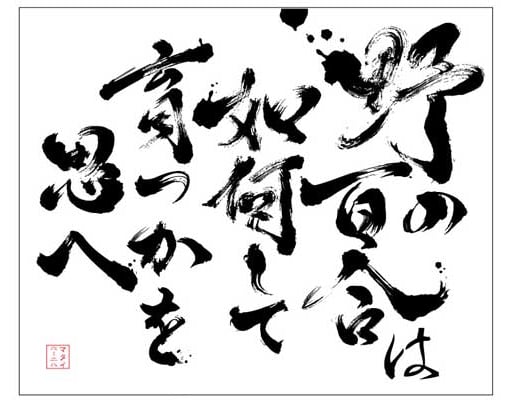 野の百合は
如何して
育つかを
思へ
マタイ
六〜二八